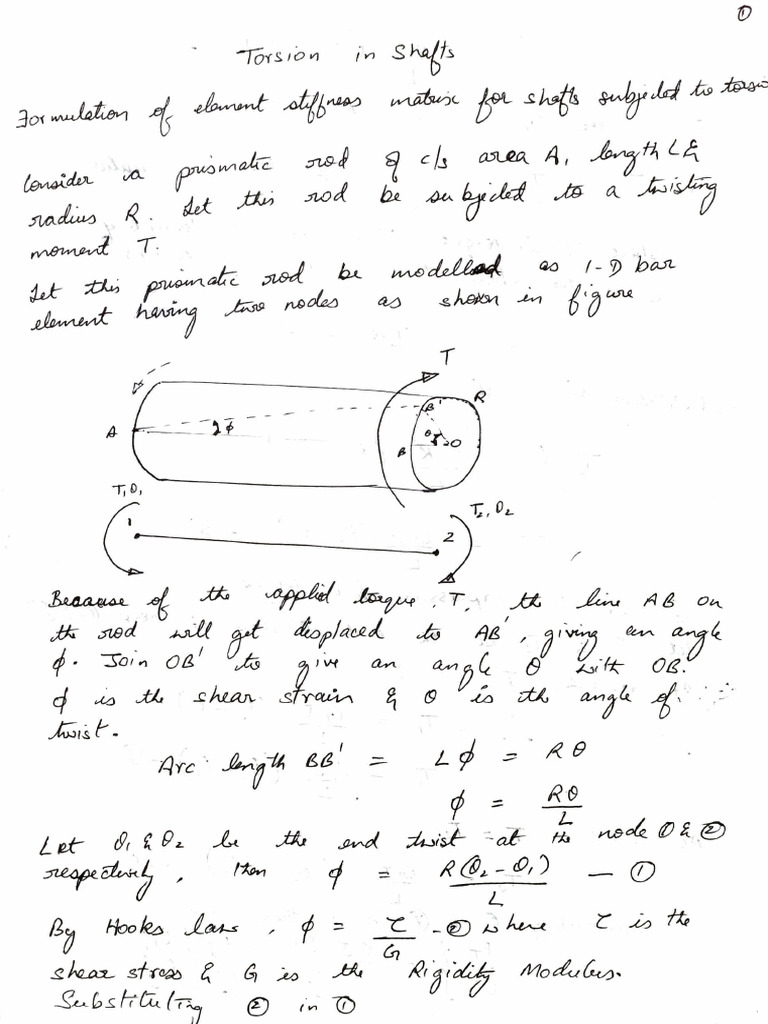 ①
Torsion in Shafts
Formulation of element stiffness matrix for shafts subjected to torsio
Consider a prismatic rod of c/s area A, length L &
radius R. Let this rod be subjected to a twisting
moment T.
Let this prismatic rod be modelled as 1-D bar
element having two nodes as shown in figure
T
B' R
A ϕ θ O
B
T₁θ₁
T₂, θ₂
1
2
Because of the applied torque, T, the line AB on
the rod will get displaced to AB', giving an angle
ϕ. Join OB' to give an angle θ with OB.
ϕ is the shear strain & θ is the angle of
twist.
Arc length BB' = Lϕ = Rθ
ϕ = Rθ/L
Let θ₁ & θ₂ be the end twist at the node ① & ②
respectively, then ϕ = R(θ₂ - θ₁)/L — ①
By Hooks law, ϕ = τ/G - ② where τ is the
shear stress & G is the Rigidity Modulus.
Substituting ② in ①